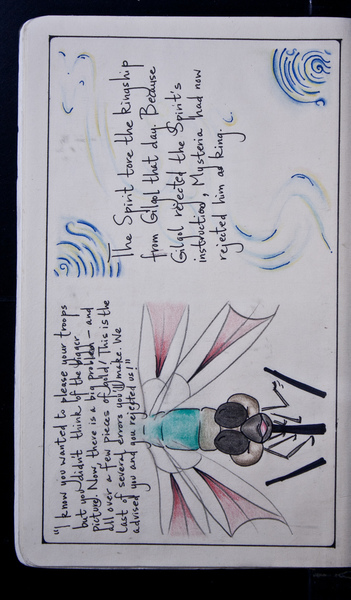 "I know you wanted to please your troops
but you didn't think of the bigger
picture. Now, there is a big problem - and
all over a few pieces of gold! This is the
last of several errors you'll make. We
advised you and you rejected us!"
The Spirit tore the kingship
from Gilool that day. Because
Gilool rejected the Spirit's
instruction, Mysteria had now
rejected him as king.